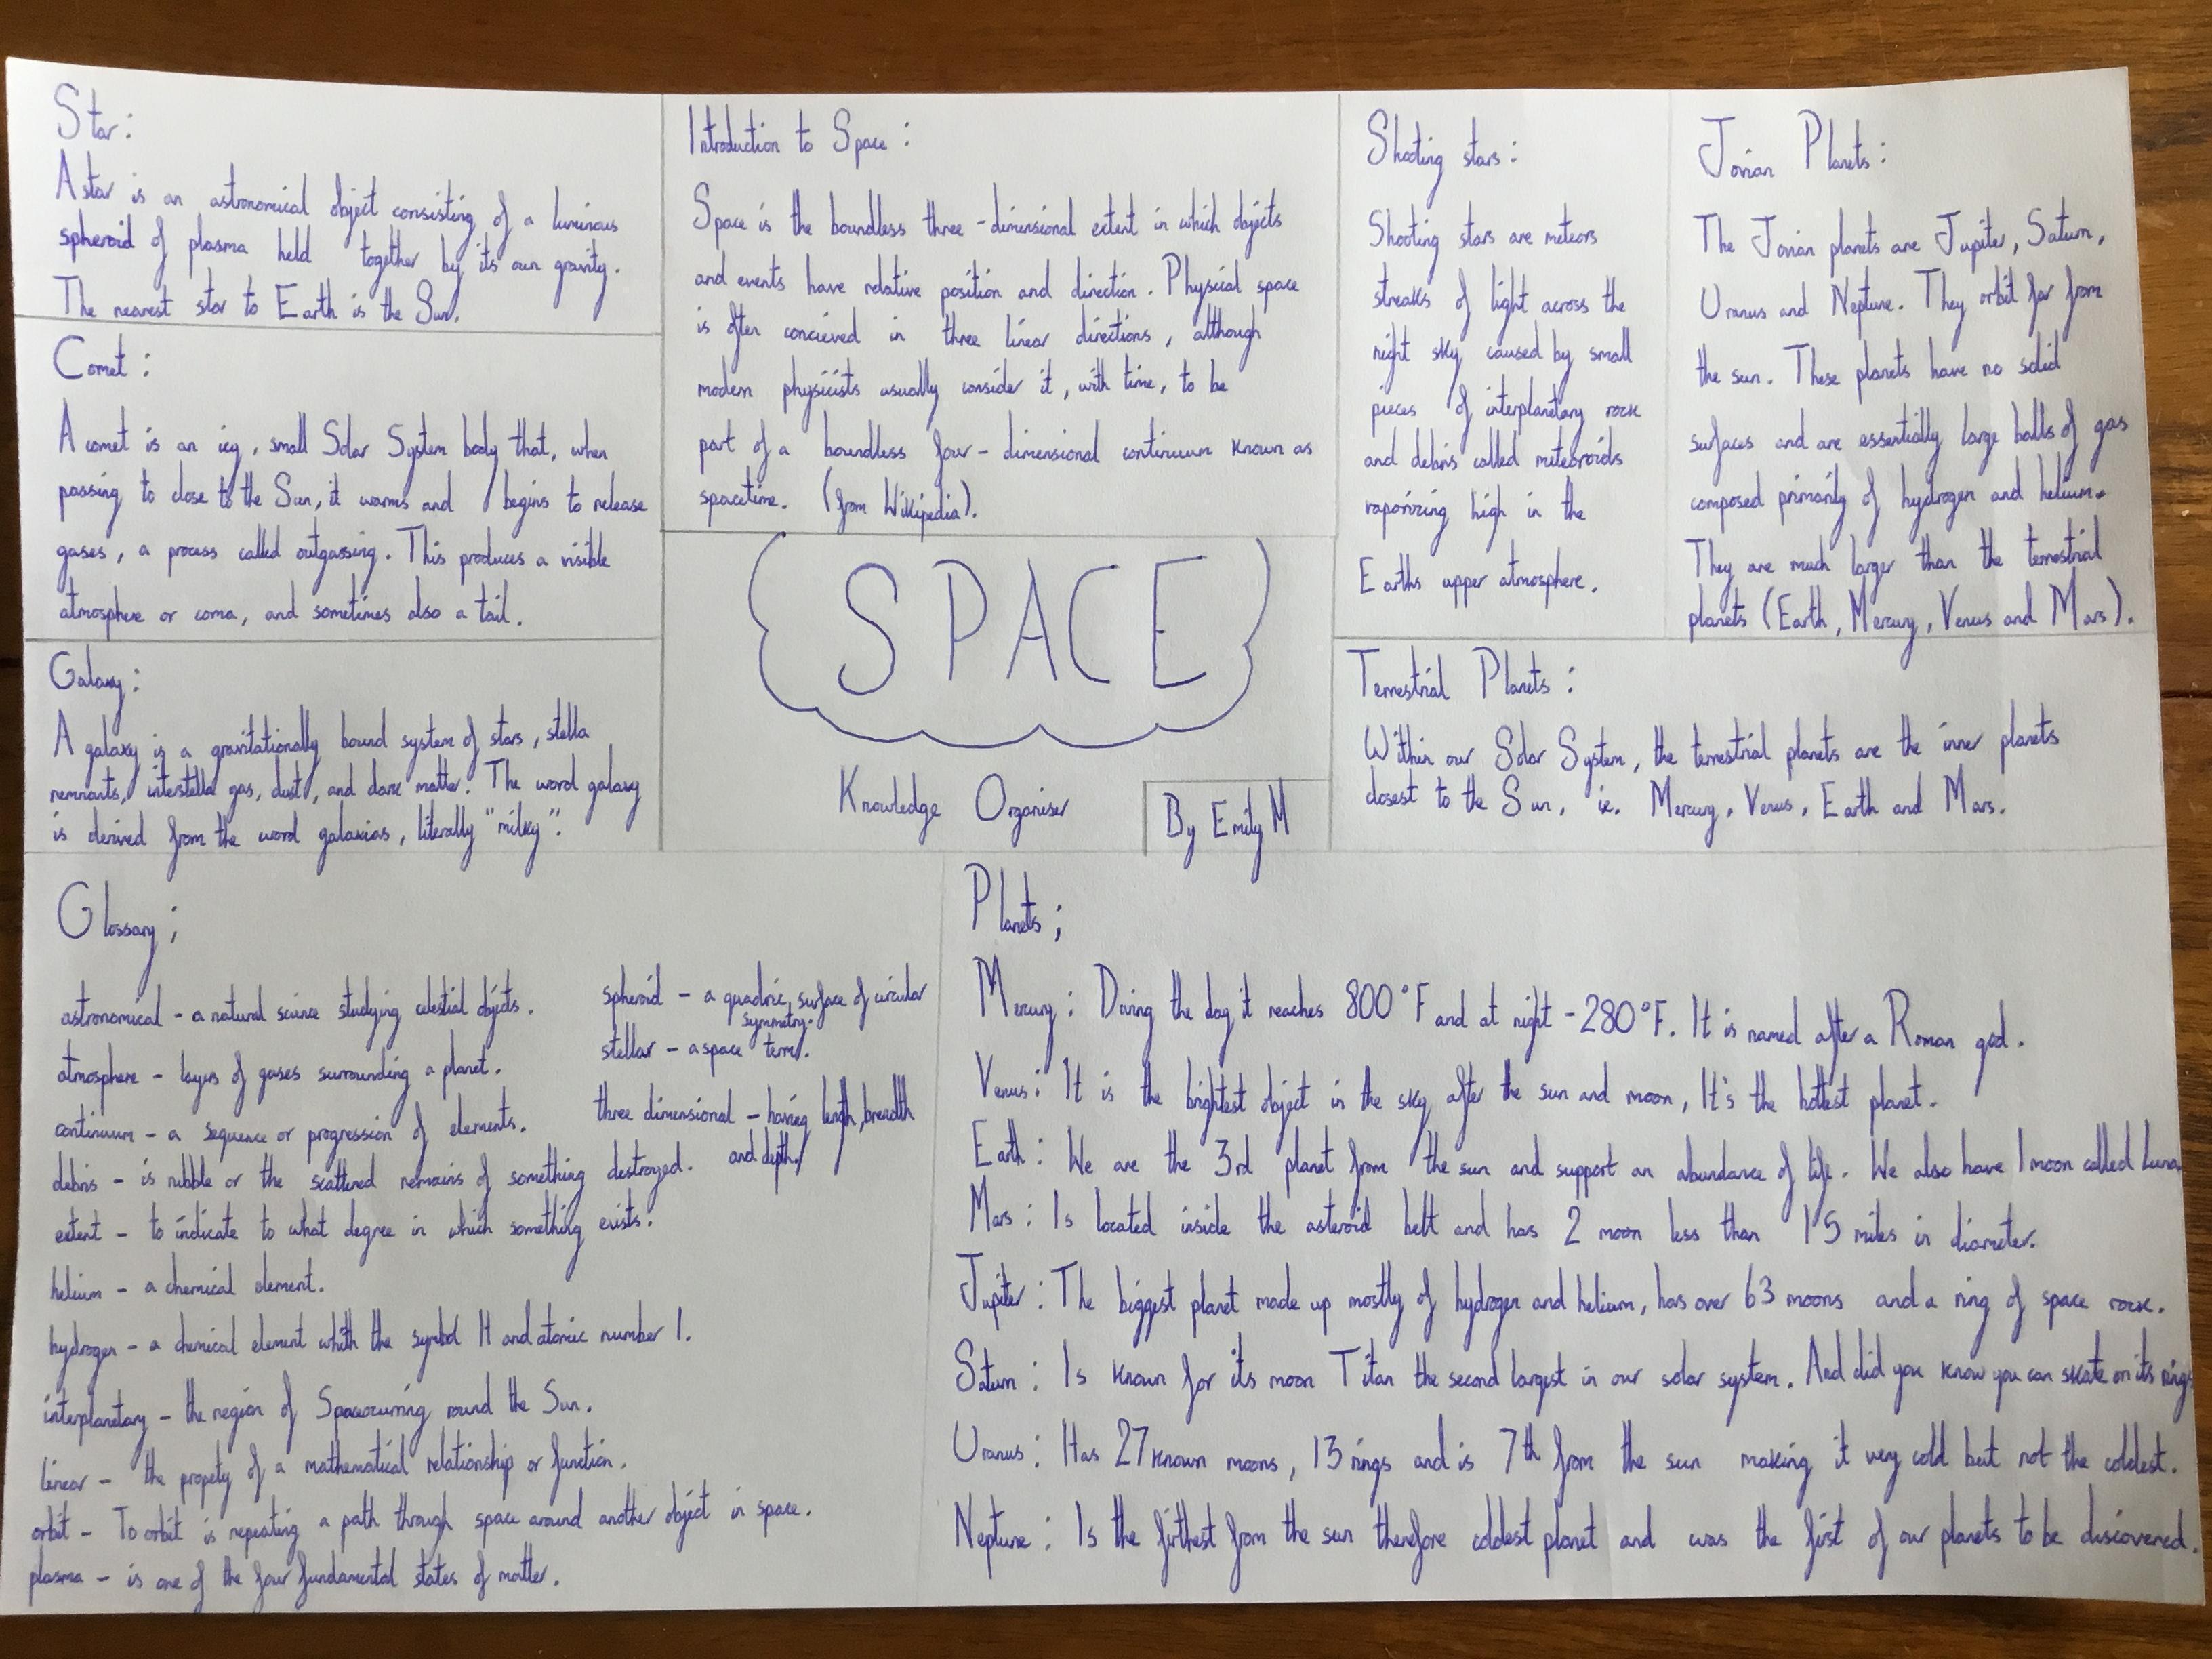 Star:
A star is an astronomical object consisting of a luminous
spheroid of plasma held together by its own gravity.
The nearest star to Earth is the Sun.
Comet:
A comet is an icy, small Solar System body that, when
passing to close to the Sun, it warms and begins to release
gases, a process called outgassing. This produces a visible
atmosphere or coma, and sometimes also a tail.
Galaxy:
A galaxy is a gravitationally bound system of stars, stella
remnants, interstella gas, dust, and dark matter. The word galaxy
is derived from the word galaxias, literally "milky".
Introduction to Space:
Space is the boundless three-dimensional extent in which objects
and events have relative position and direction. Physical space
is often concieved in three linear directions, although
modern physicists usually consider it, with time, to be
part of a boundless four-dimensional continuum known as
spacetime. (from Wikipedia).
SPACE
Knowledge Organiser
By Emily M
Shooting stars:
Shooting stars are meteors
streaks of light across the
night sky caused by small
pieces of interplanetary rock
and debris called meteoroids
vaporizing high in the
Earths upper atmosphere.
Jovian Planets:
The Jovian planets are Jupiter, Saturn,
Uranus and Neptune. They orbit far from
the sun. These planets have no solid
surfaces and are essentially large balls of gas
composed primarily of hydrogen and helium.
They are much larger than the terrestrial
planets (Earth, Mercury, Venus and Mars).
Terrestrial Planets:
Within our Solar System, the terrestrial planets are the inner planets
closest to the Sun, ie. Mercury, Venus, Earth and Mars.
Glossary;
astronomical - a natural science studying celestial objects.
atmosphere - layers of gases surrounding a planet.
continuum - a sequence or progression of elements.
debris - is rubble or the scattered remains of something destroyed.
extent - to indicate to what degree in which something exists.
helium - a chemical element.
hydrogen - a chemical element whith the symbol H and atomic number 1.
interplanetary - the region of Spaceocurring round the Sun.
linear - the propety of a mathematical relationship or function.
orbit - To orbit is repeating a path through space around another object in space.
plasma - is one of the four fundamental states of matter.
spheroid - a quadric surface of circular
symmetry.
stellar - a space term.
three dimensional - having length, breadth
and depth.
Planets;
Mercury: During the day it reaches 800°F and at night -280°F. It is named after a Roman god.
Venus: It is the brightest object in the sky after the sun and moon, It's the hottest planet.
Earth: We are the 3rd planet from the sun and support an abundance of life. We also have 1 moon called Luna.
Mars: Is located inside the asteroid belt and has 2 moon less than 15 miles in diameter.
Jupiter: The biggest planet made up mostly of hydrogen and helium, has over 63 moons and a ring of space rock.
Saturn: Is known for its moon Titan the second largest in our solar system. And did you know you can skate on its rings
Uranus: Has 27 known moons, 13 rings and is 7th from the sun making it very cold but not the coldest.
Neptune: Is the firthest from the sun therefore coldest planet and was the first of our planets to be discovered.